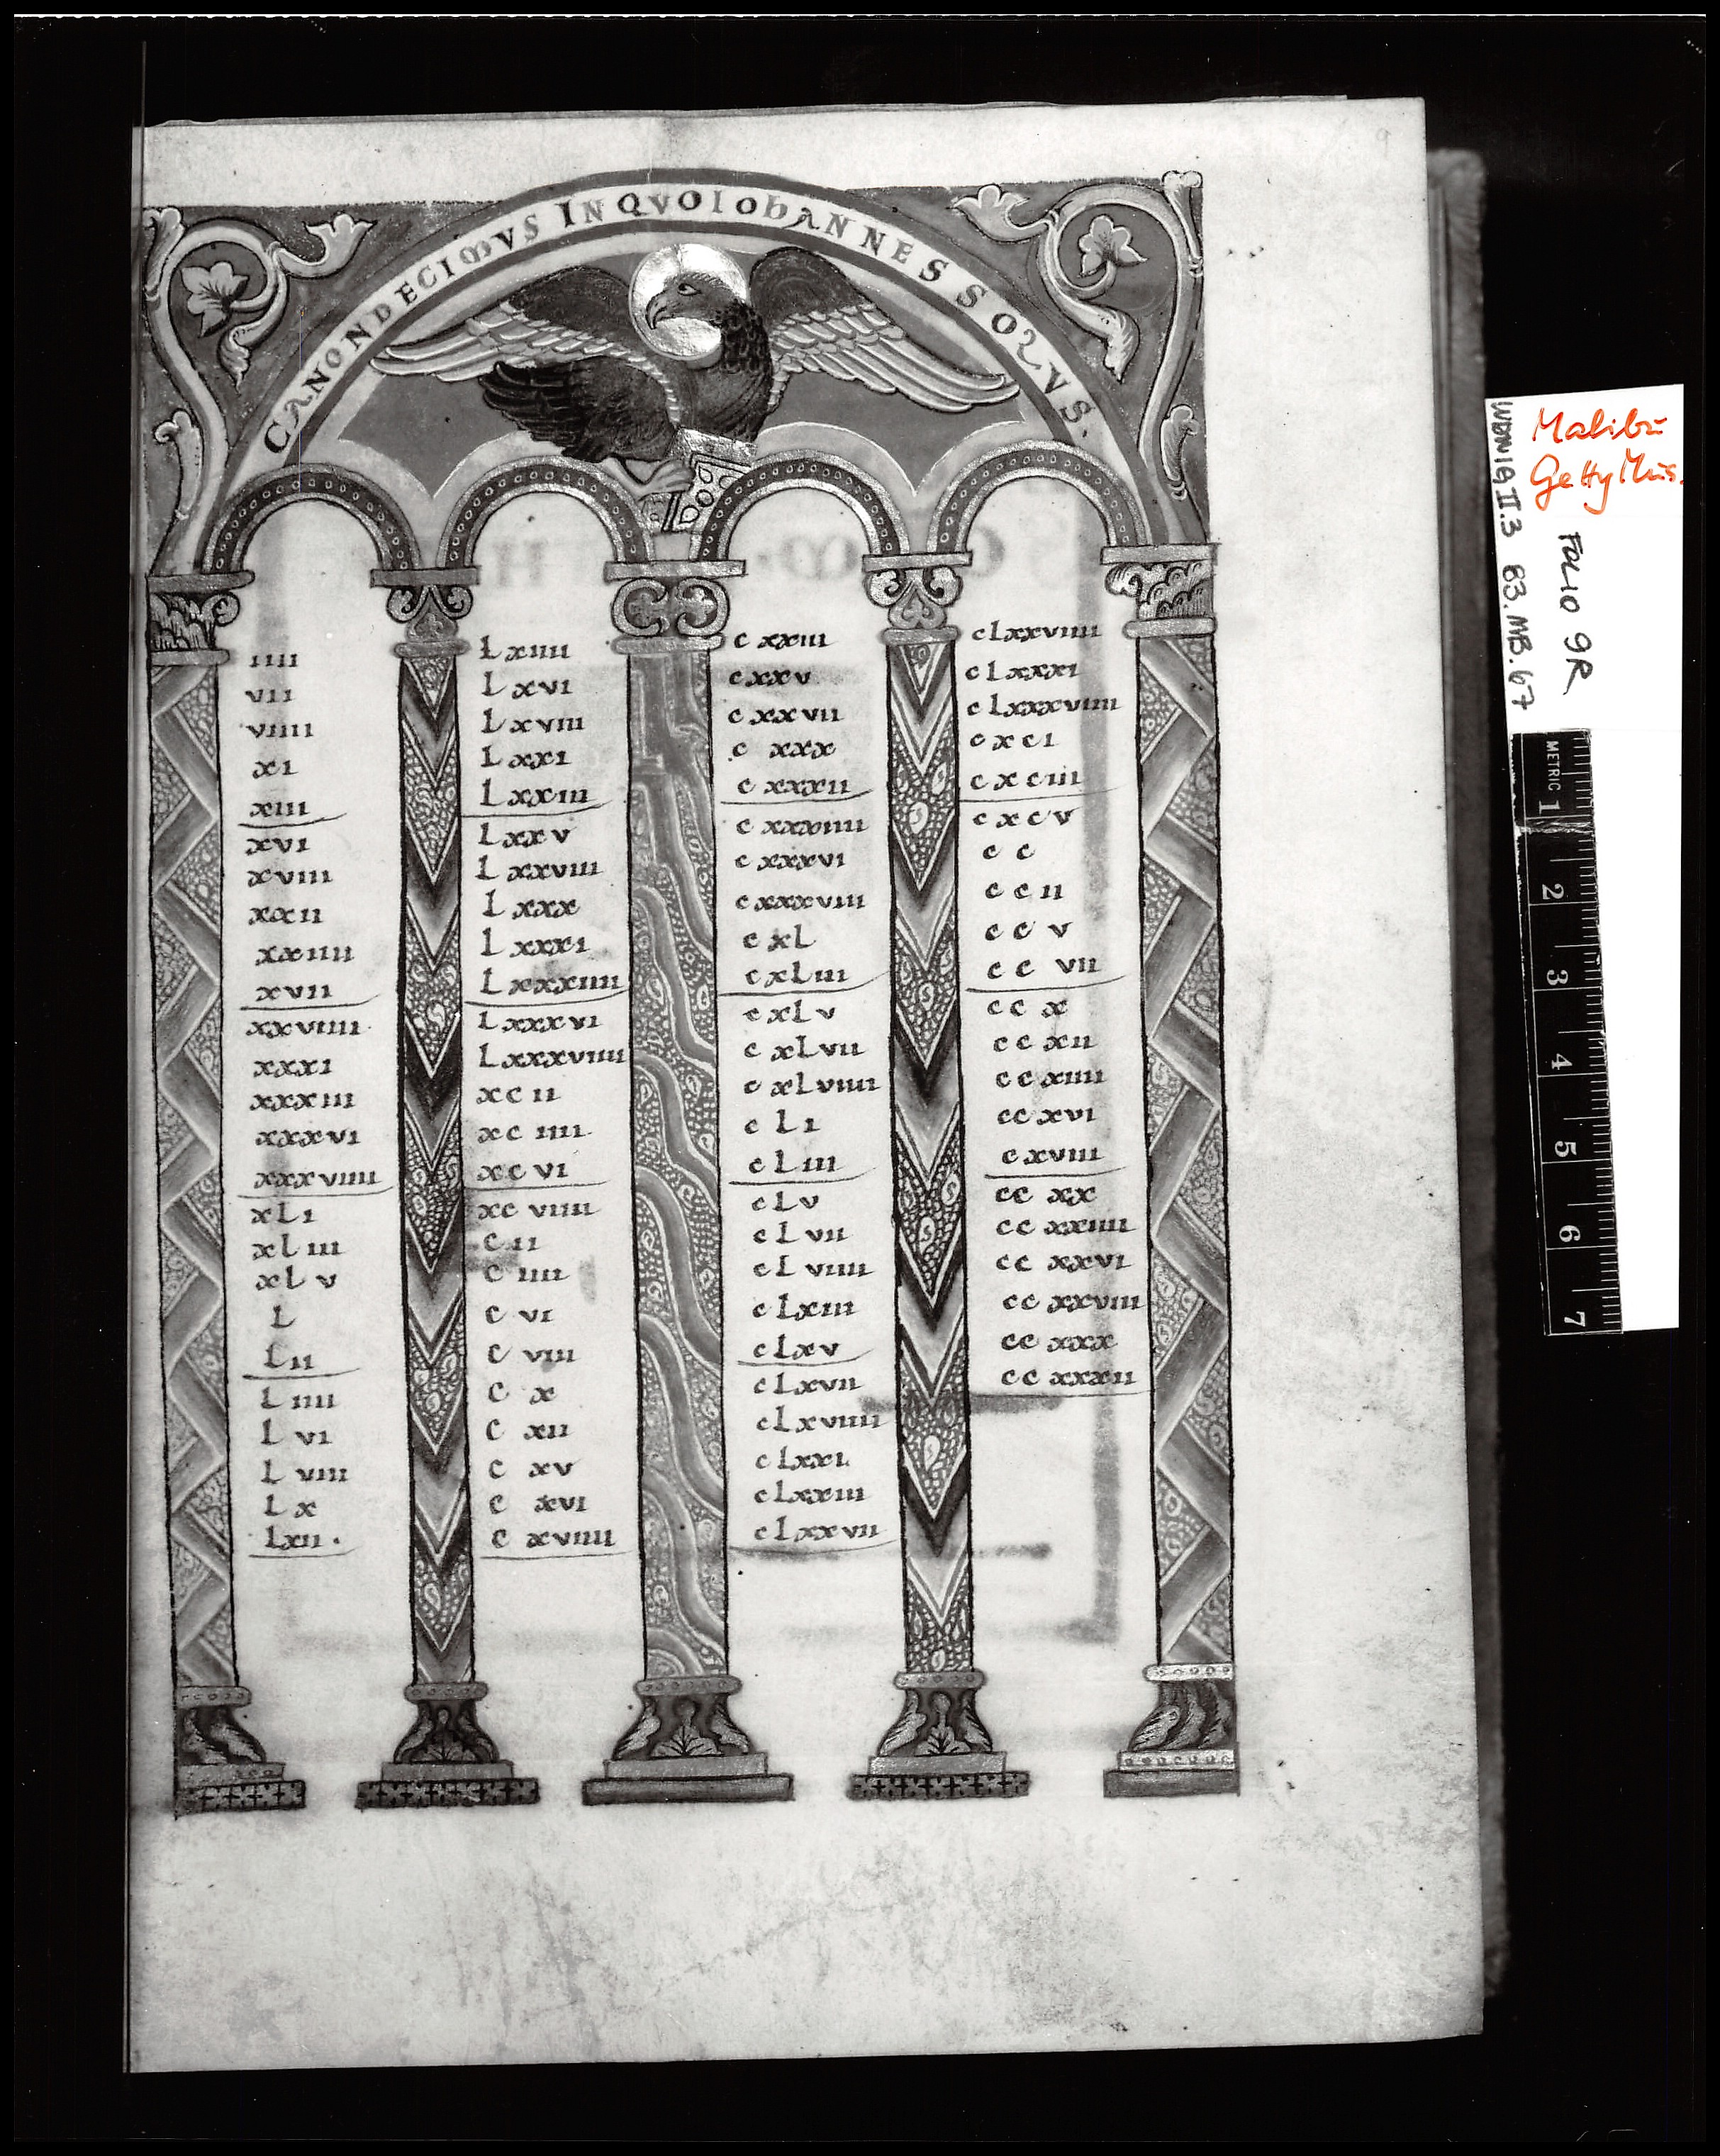 CANON DECIMVS IN QVO IOhANNES SOLVS.
IIII
VII
VIIII
XI
XIII
XVI
XVIII
XXII
XXIIII
XVII
XXVIIII
XXXI
XXXIII
XXXVI
XXXVIIII
XLI
XLIII
XLV
L
LII
LIIII
LVI
LVIII
LX
LXII.
LXIIII
LXVI
LXVIII
LXXI
LXXIII
LXXV
LXXVIII
LXXX
LXXXI
LXXXIIII
LXXXVI
LXXXVIIII
XCII
XCIIII
XCVI
XCVIIII
CII
CIIII
CVI
CVIII
CX
CXII
CXV
CXVI
CXVIIII
CXXIII
CXXV
CXXVII
CXXX
CXXXII
CXXXIIII
CXXXVI
CXXXVIII
CXL
CXLIII
CXLV
CXLVII
CXLVIIII
CLI
CLIII
CLV
CLVII
CLVIIII
CLXIII
CLXV
CLXVII
CLXVIIII
CLXXI
CLXXIII
CLXXVII
CLXXVIIII
CLXXXI
CLXXXVIIII
CXCI
CXCIII
CXCV
CC
CCII
CCV
CCVII
CCX
CCXII
CCXIIII
CCXVI
CXVIII
CCXX
CCXXIIII
CCXXVI
CCXXVIII
CCXXX
CCXXXII
9
Malibu
Getty Mus.
FOLIO 9R
LUDWIG II.3 83.MB.67
METRIC 1 2 3 4 5 6 7